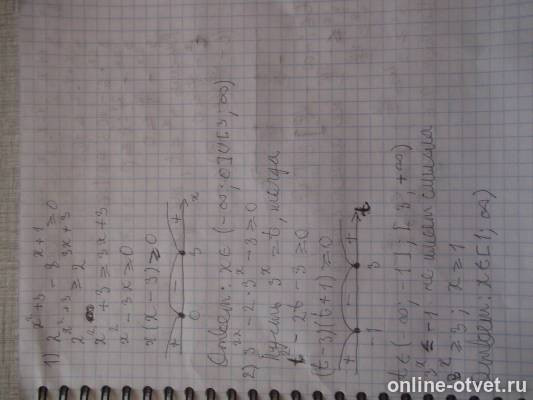 1) 2^(x²+3) - 8^(x+1) ≥ 0
2^(x²+3) ≥ 2^(3x+3)
x² + 3 ≥ 3x + 3
x² - 3x ≥ 0
x(x-3) ≥ 0
+ - + x
0 3
Ответ: x∈(-∞;0]∪[3;∞)
2) 3^(2x) - 2·3^x - 3 ≥ 0
Пусть 3^x = t, тогда
t² - 2t - 3 ≥ 0
(t-3)(t+1) ≥ 0
+ - + t
-1 3
t∈(-∞; -1]; [3; +∞)
3^x ≤ -1 не имеет смысла
3^x ≥ 3; x ≥ 1
Ответ: x∈[1; ∞)
online-otvet.ru